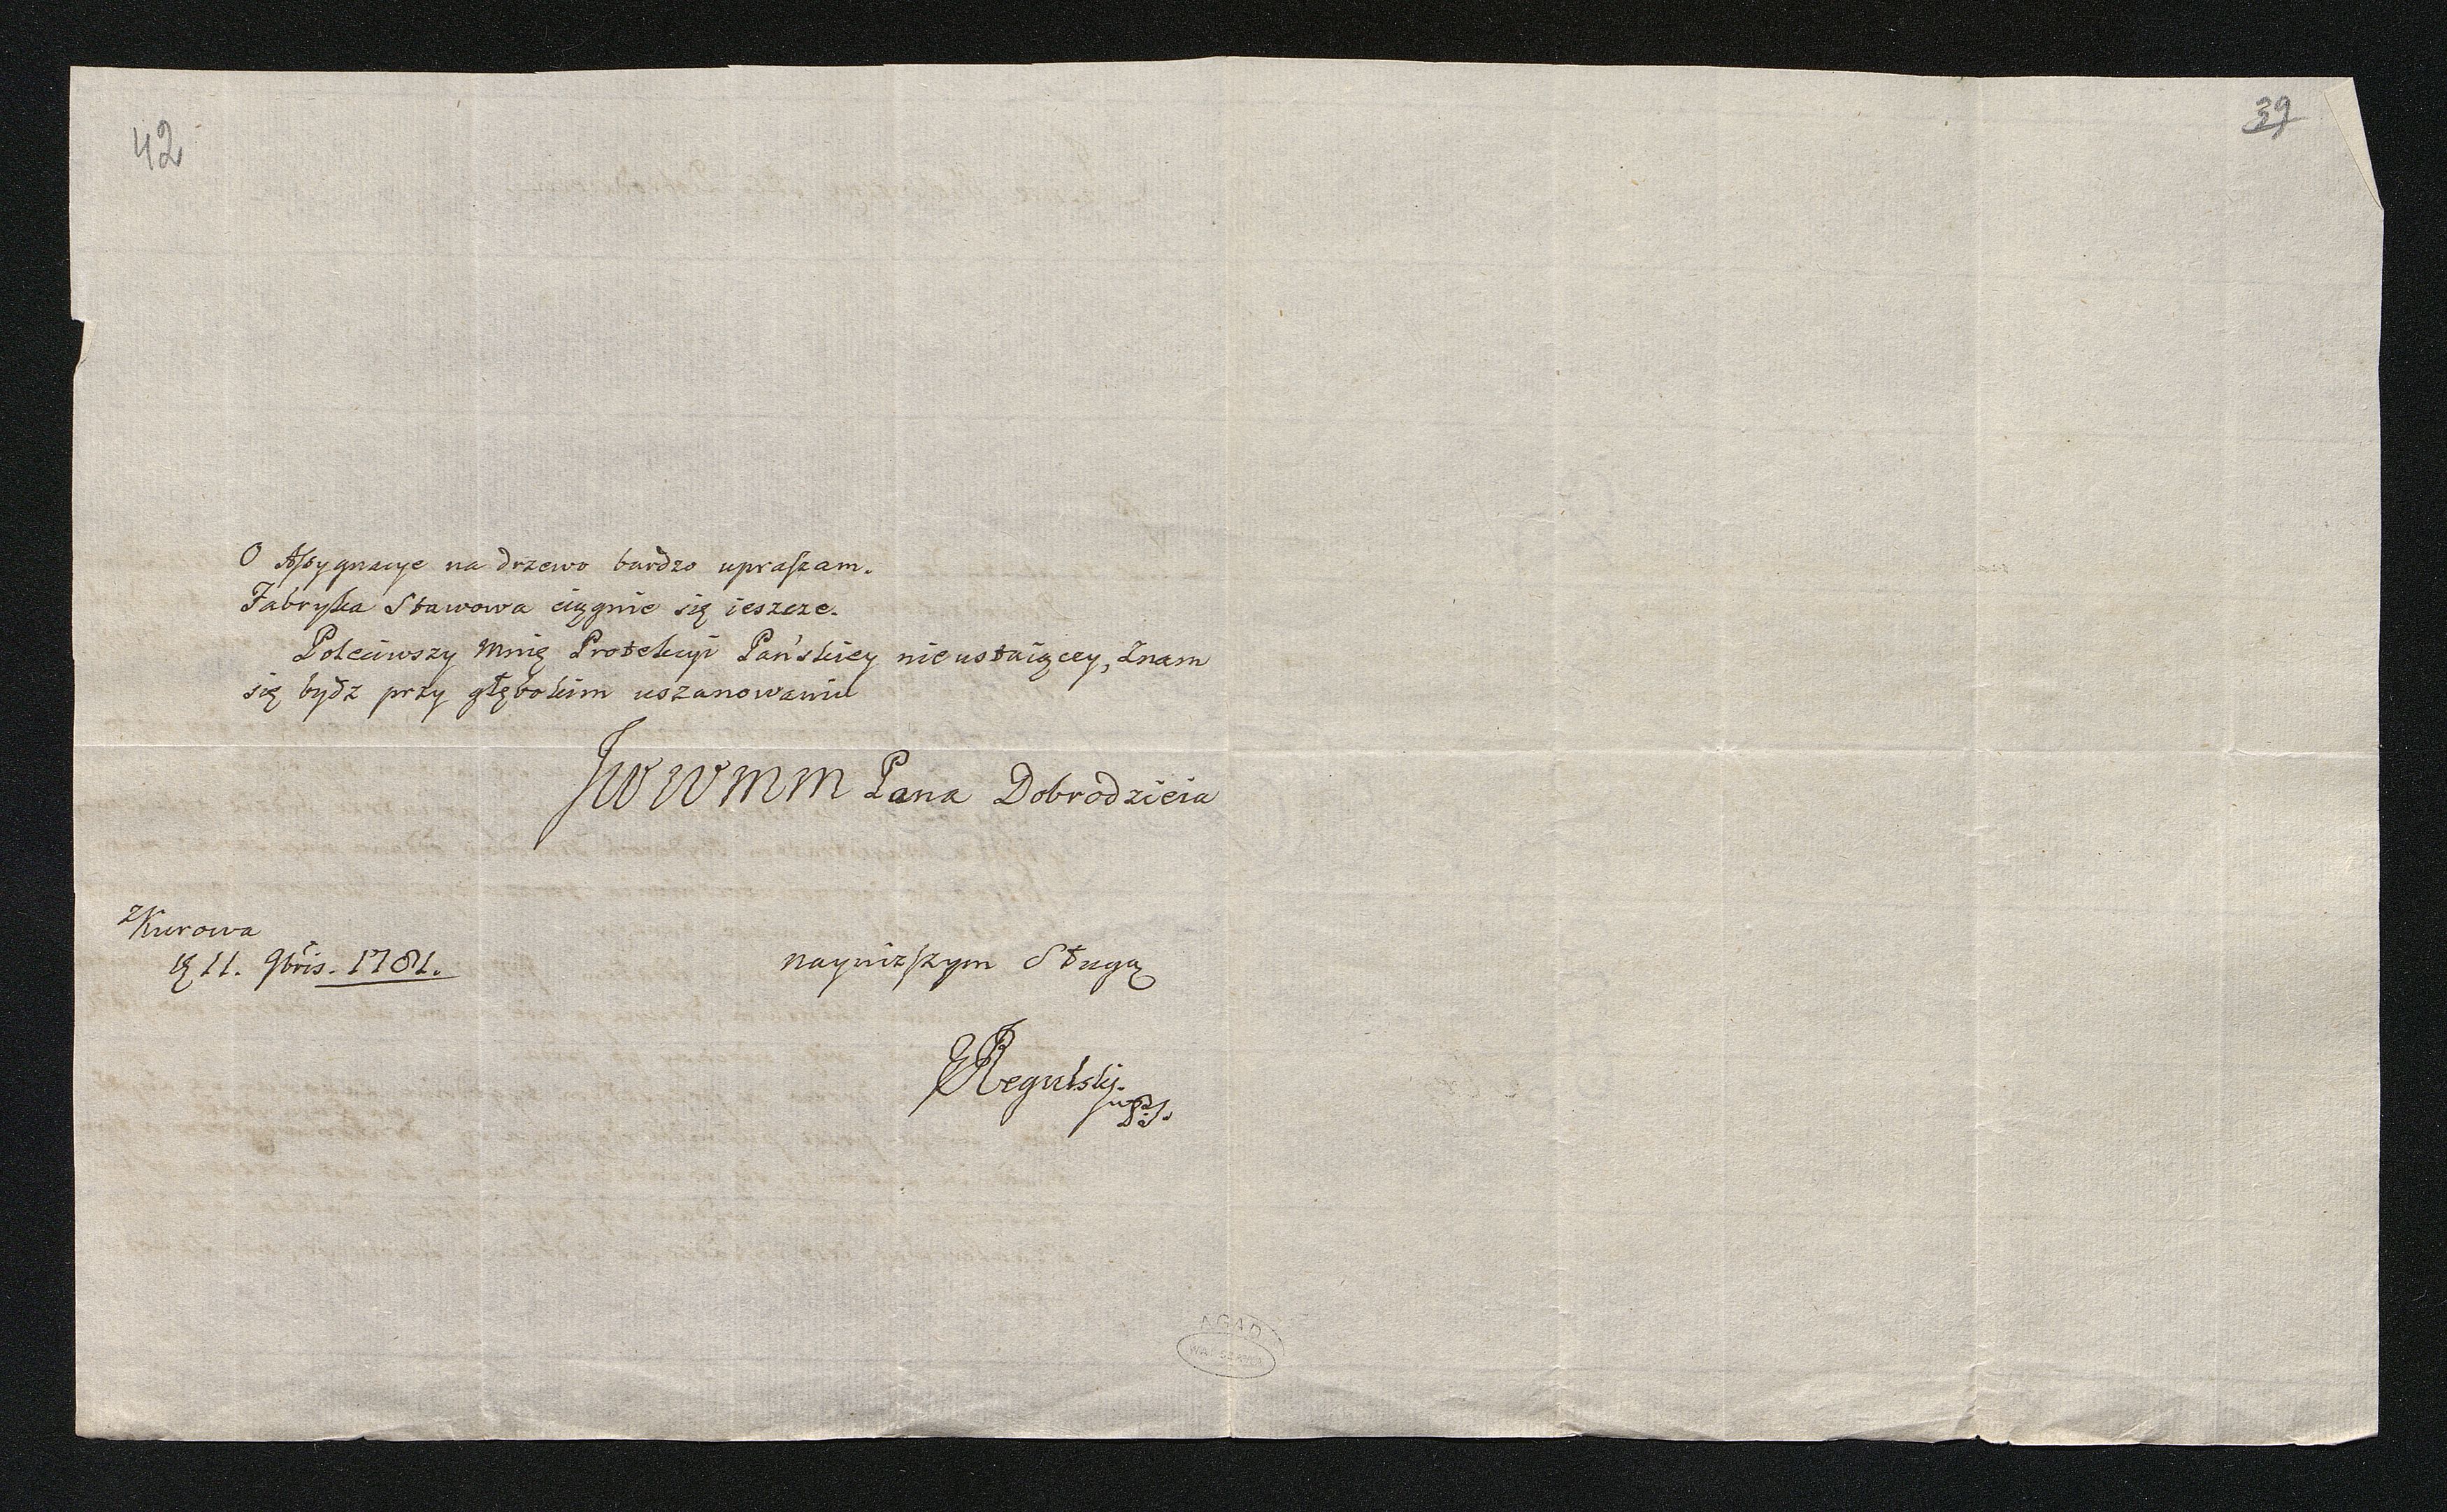 42
39
O Assygnacye na drzewo bardzo upraszam.
Fabryka Stawowa ciągnie się ieszcze.
Poleciwszy mnię Protekcyi Pańskiey nieustaiącey, znam
się bydz przy głębokim uszanowaniu
JWWMM Pana Dobrodzieia
z Kurowa
11. 9bris. 1781.
nayniższym Sługą
Regulski.
AGAD
WARSZAWA